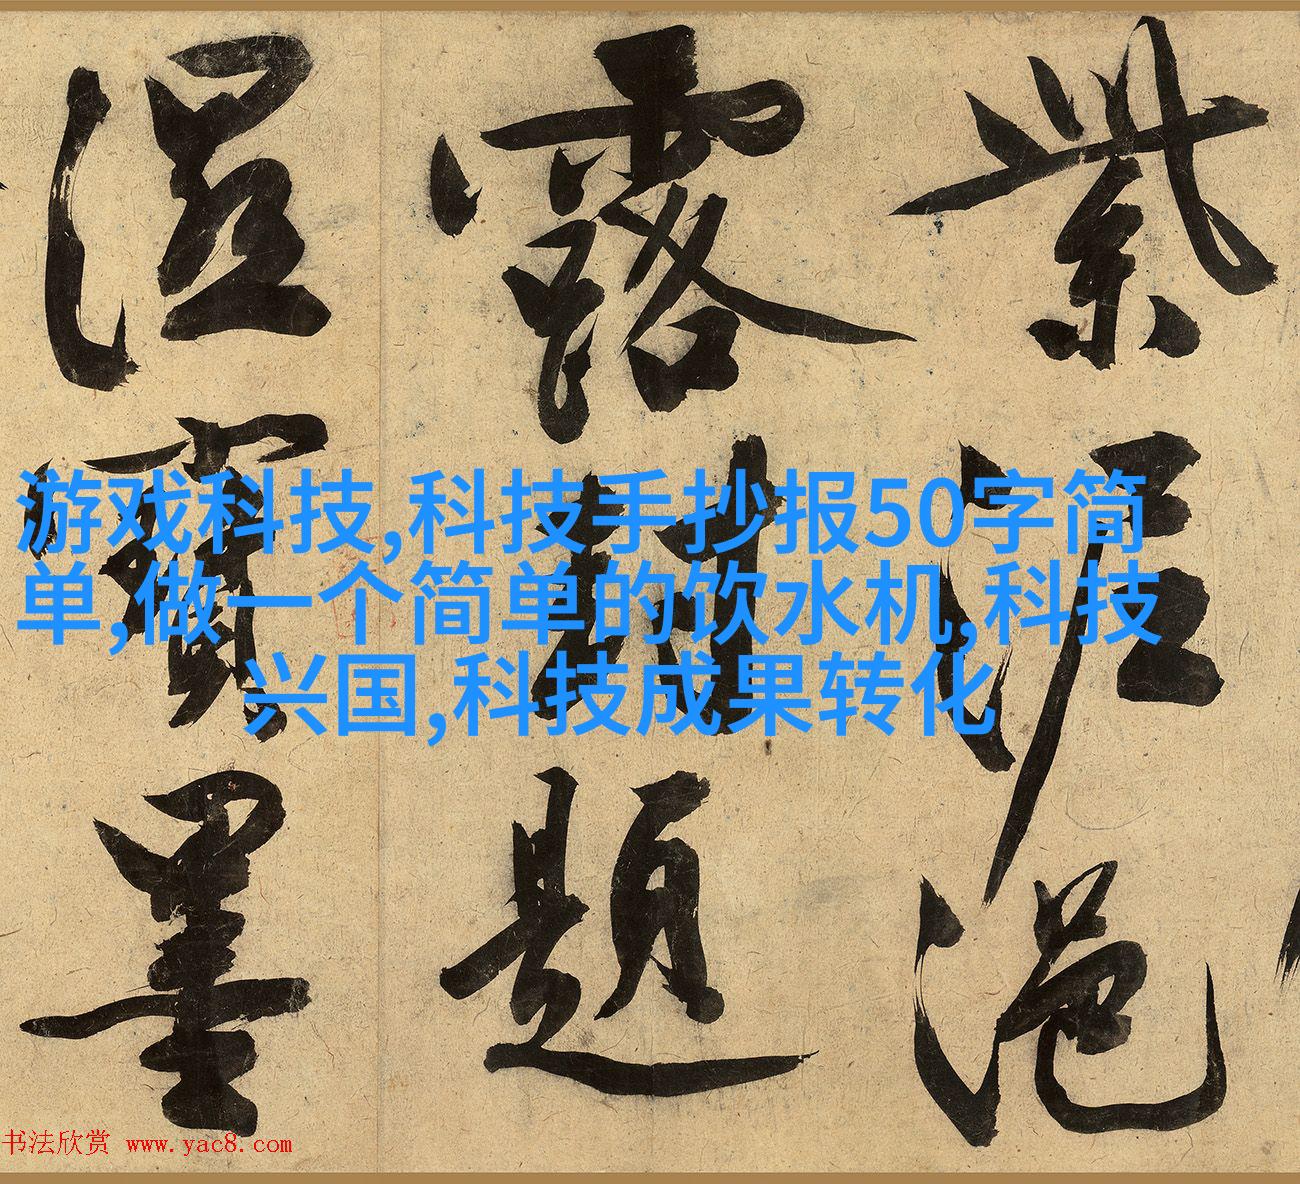 紫泥浥
露封題
滋寳墨
游戏科技,科技手抄报50字简
单,做一个简单的饮水机,科技
兴国,科技成果转化
书法欣赏 www.yac8.com